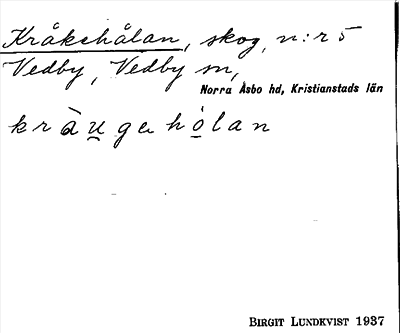 Kråkehålan, skog, n:r 5
Vedby, Vedby sn,
Norra Åsbo hd, Kristianstads län
kràu̲gɐhȯ̲lan
BIRGIT LUNDKVIST 1937